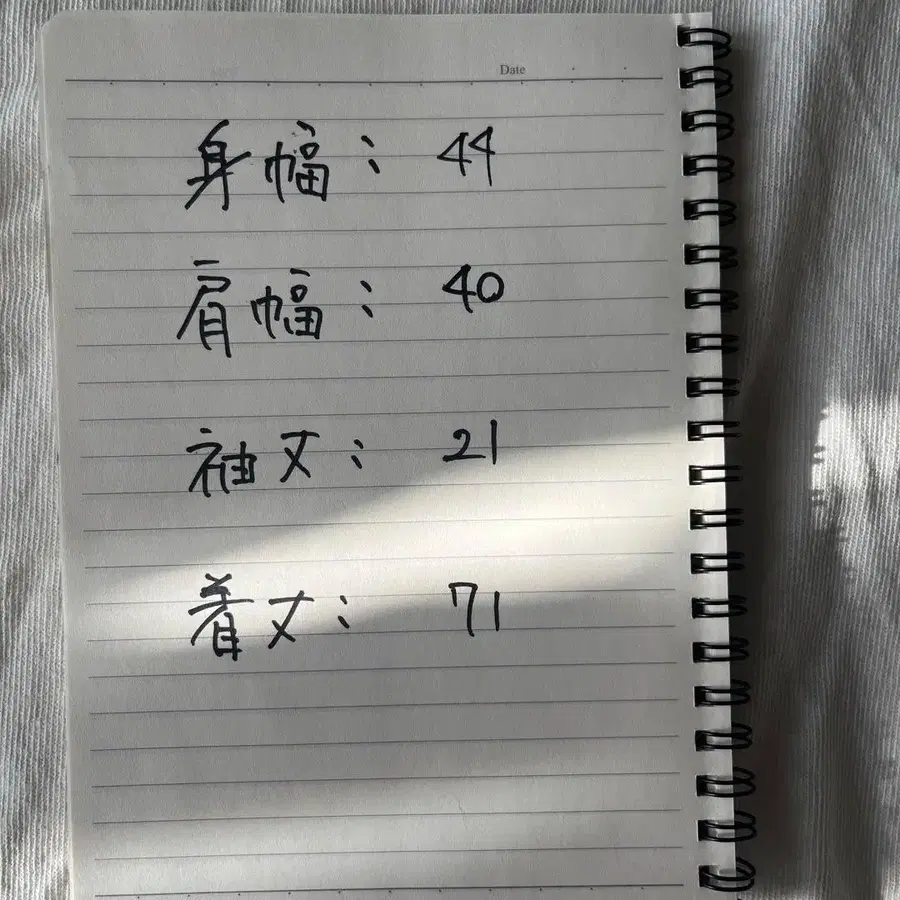 Date
身幅: 44
肩幅: 40
袖丈: 21
着丈: 71